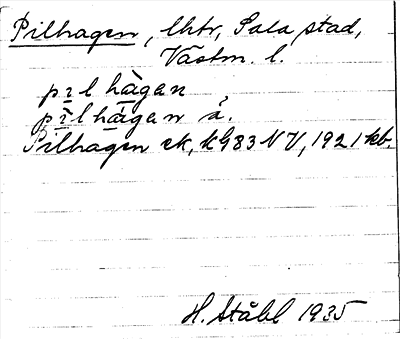 Pilhagen, lhtr, Sala stad,
Västm. l.
pɪl hàgan
pìl hágan å.
Pilhagen ek, kG83NV, 1921 kb.
H. Ståhl 1935